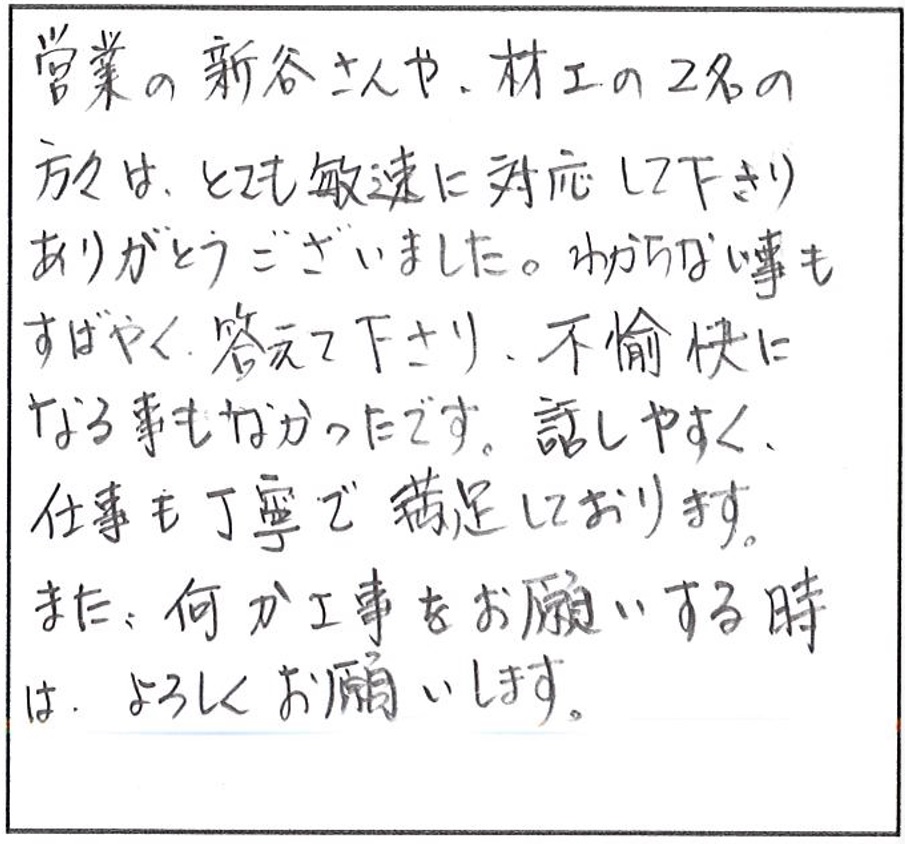 営業の新谷さんや、材工の2名の
方々は、とても敏速に対応して下さり
ありがとうございました。わからない事も
すばやく、答えて下さり、不愉快に
なる事もなかったです。話しやすく、
仕事も丁寧で満足しております。
また、何か工事をお願いする時
は、よろしくお願いします。